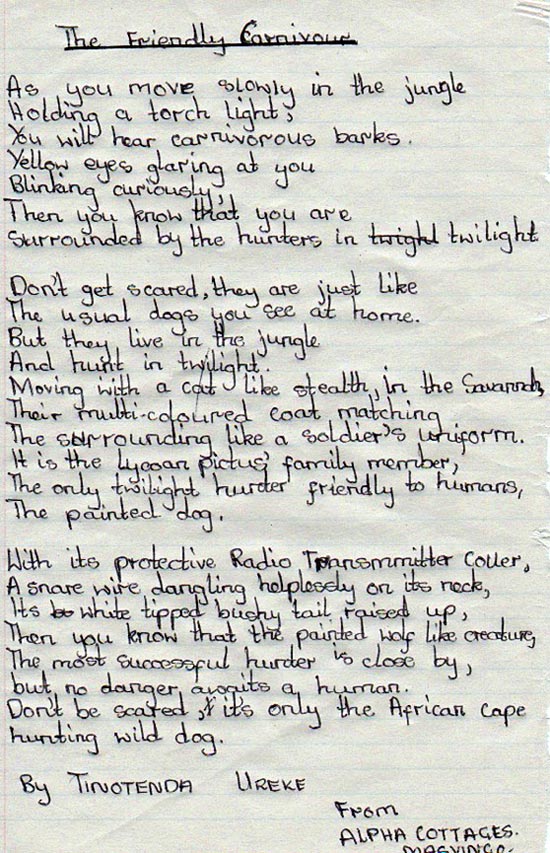 The Friendly Carnivour
As you move slowly in the jungle
Holding a torch light,
You will hear carnivorous barks.
Yellow eyes glaring at you
Blinking curiously,
Then you know that you are
Surrounded by the hunters in twight twilight
Don't get scared, they are just like
The usual dogs you see at home.
But they live in the jungle
And hunt in twilight.
Moving with a cat like stealth, in the Savannah,
Their multi-coloured coat matching
The surrounding like a soldier's uniform.
It is the Lycoan pictus' family member,
The only twilight hunter friendly to humans,
The painted dog.
With its protective Radio Transmmitter Coller,
A snare wire dangling helplessly on its neck,
Its white tipped bushy tail raised up,
Then you know that the painted wolf like creature,
The most successful hunter is close by,
but, no danger awaits a human.
Don't be scared, it's only the African Cape
hunting wild dog.
By TINOTENDA UREKE
From
ALPHA COTTAGES.
MASVINGO.